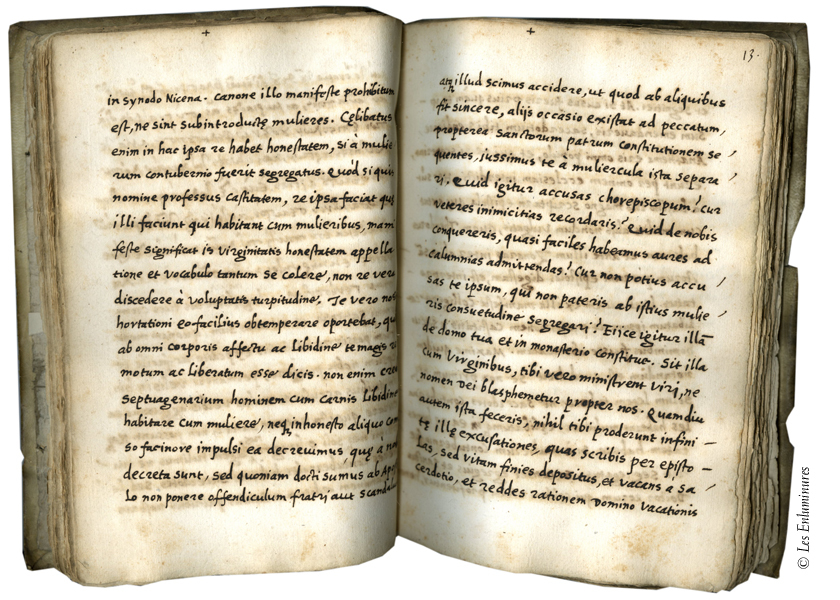 +
in synodo Nicena. Canone illo manifeste prohibitum
est, ne sint subintroductę mulieres. Cęlibatus
enim in hac ipsa re habet honestatem, si à mulie
rum contubernio fuerit segregatus. Quòd si quis
nomine professus castitatem, re ipsa faciat quę
illi faciunt qui habitant cum mulieribus, mani
feste significat is virginitatis honestatem appella
tione et vocabulo tantum se colere, non re vera
discedere à voluptatis turpitudine. Te vero nos
hortationi eo facilius obtemperare oportebat, quo
ab omni corporis affectu ac libidine te magis re
motum ac liberatum esse dicis. non enim credo
septuagenarium hominem cum carnis libidine
habitare cum muliere, neq inhonesto aliquo com
so facinore impulsi ea decrevimus, quę à nobis
decreta sunt, sed quoniam docti sumus ab Apo
lo non ponere offendiculum fratri aut scandalum
+
13.
atq illud scimus accidere, ut quod ab aliquibus
fit sincere, alijs occasio existat ad peccatum,
propterea sanctorum patrum constitutionem se
quentes, jussimus te à muliercula ista separa
ri. Quid igitur accusas chorepiscopum? cur
veteres inimicitias recordaris? Quid de nobis
conquereris, quasi faciles habeamus aures ad
calumnias admittendas? Cur non potius accu
sas te ipsum, qui non pateris ab istius mulie
ris consuetudine segregari? Eijce igitur illā
de domo tua et in monasterio constitue. Sit illa
cum Virginibus, tibi vero ministrent viri, ne
nomen Dei blasphemetur propter nos. Quamdiu
autem ista feceris, nihil tibi proderunt infini
tę illę excusationes, quas scribis per episto
las, sed vitam finies depositus, et vacans à sa
cerdotio, et reddes rationem Domino vacationis
© Les Enluminures